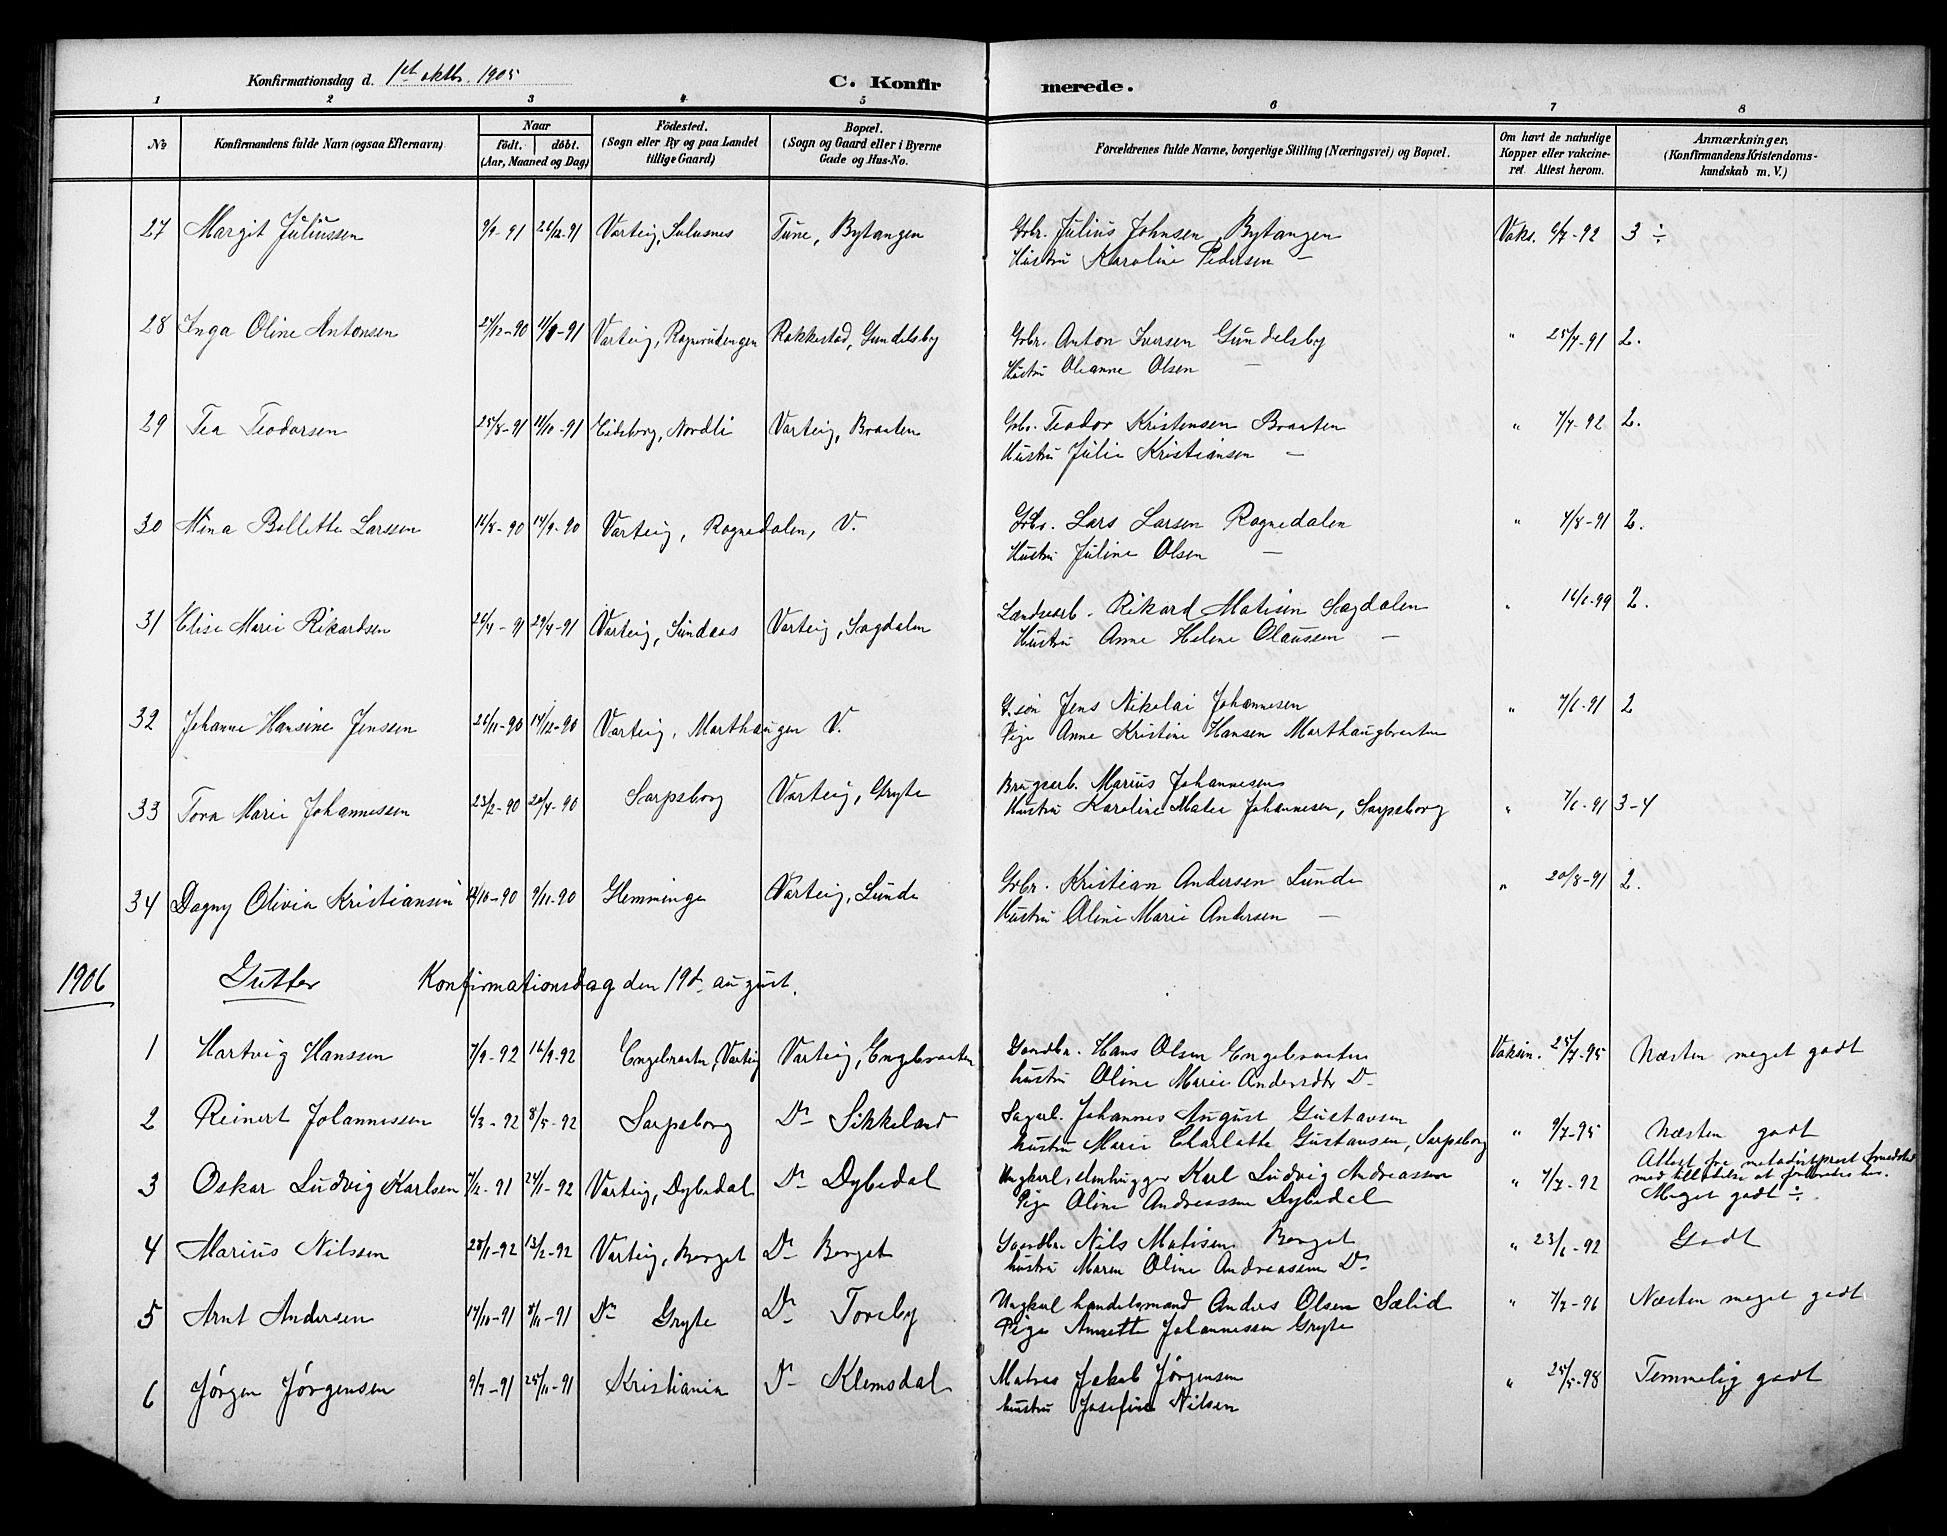 Konfirmationsdag d. 1ste oktbr. 1905
C. Konfirmerede.
1 2 3 4 5 6 7 8
No
Konfirmandens fulde Navn (ogsaa Efternavn)
Naar
födt. döbt.
(Aar, Maaned og Dag)
Födested.
(Sogn eller By og paa Landet
tillige Gaard)
Bopæl.
(Sogn og Gaard eller i Byerne
Gade og Hus-No.
Forældrenes fulde Navne, borgerlige Stilling (Næringsvei) og Bopæl.
Om havt de naturlige
Kopper eller vakcine-
ret. Attest herom.
Anmærkninger.
(Konfirmandens Kristendoms-
kundskab m. V.)
27 Margit Juliussen 9/9-91 26/12-91 Varteig, Tune, Bytangen Grbr. Julius Johnsen, Bytangen Vaks. 6/7-92 3 ÷
Hustru Karoline Pedersen —
28 Inga Oline Antonsen 27/12-90 Varteig, Rakkestad, Gundelsby Grbr. Anton Iversen Gundelsby " 25/7-91 2.
Hustru Olianne Olsen —
29 Tea Teodorsen 25/8-91 11/10-91 Eidsberg, Nordli Varteig, Braaten Grbr. Teodor Kristensen Braaten " 7/7-92 2.
Hustru Julie Kristiansen —
30 Mina Bollette Larssen 14/9-90 Varteig, Ragnedalen, V. Grbr. Lars Larsen Ragnedalen " 4/8-91 2.
Hustru Juline Olsen —
31 Elise Marie Rikardsen 29/4-91 Varteig, Sundaas Varteig, Sagdalen Landvarb. Rikard Matisen Sagdalen " 16/6-99 2.
Hustru Anne Helene Olaussen —
32 Johanne Hansine Jenssen 26/11-90 14/12-90 Varteig, Marthaugen V. G.søn Jens Nikolai Johannesen " 7/6-91 2
Pige Anne Kristine Hansen Marthaugbraaten
33 Tora Marie Johannessen 23/2-90 20/4-90 Sarpsborg Varteig, Gryte Brugsarb. Marius Johannesen
Hustru Karoline Matie Johannesen, Sarpsborg " 7/6-91 3-4
34 Dagny Olivia Kristiansen 9/11-90 Glemminge Varteig, Lunde Grbr. Kristian Andersen Lunde " 20/8-91 2.
Hustru Oline Marie Andersen —
1906 Gutter Konfirmationsdag den 19de august.
1 Hartvig Hanssen 7/9-92 16/9-92 Engebraaten, Varteig Varteig, Engebraaten Gaardbr. Hans Olsen Engebraaten Vaksin. 25/7-95 Næsten meget godt
hustru Oline Marie Andersdtr Do
2 Reinert Johannessen 6/3-92 8/5-92 Sarpsborg Do Sikkeland Sagarb. Johannes August Gustavsen
hustru Marie Charlotte Gustavsen, Sarpsborg " 9/7-95 Næsten godt
3 Oskar Ludvig Karlsen 7/12-91 24/1-92 Varteig, Dybedal Do Dybedal Ungkarl, stenhugger Karl Ludvig Andreassen " 7/7-92 Attest fra metodistprest
med tilladelse at
Meget godt ÷
Pige Oline Andreassen Dybedal
4 Marius Nilssen 28/1-92 13/2-92 Varteig, Berget Do Berget Gaardbr Nils Matisen Berget " 23/6-92 Godt
hustru Maren Oline Andreassen Do
5 Arnt Andersen 17/10-91 8/11-91 Do Gryte Do Toreby Ungkarl handelsmand Anders Olsen Sælid " 7/7-96 Næsten meget godt
Pige Annette Johannessen Gryte
6 Jørgen Jørgensen 9/7-91 25/11-91 Kristiania Do Klemsdal Matros Jakob Jørgensen " 25/5-98 Temmelig godt
hustru Josefine Nilsen